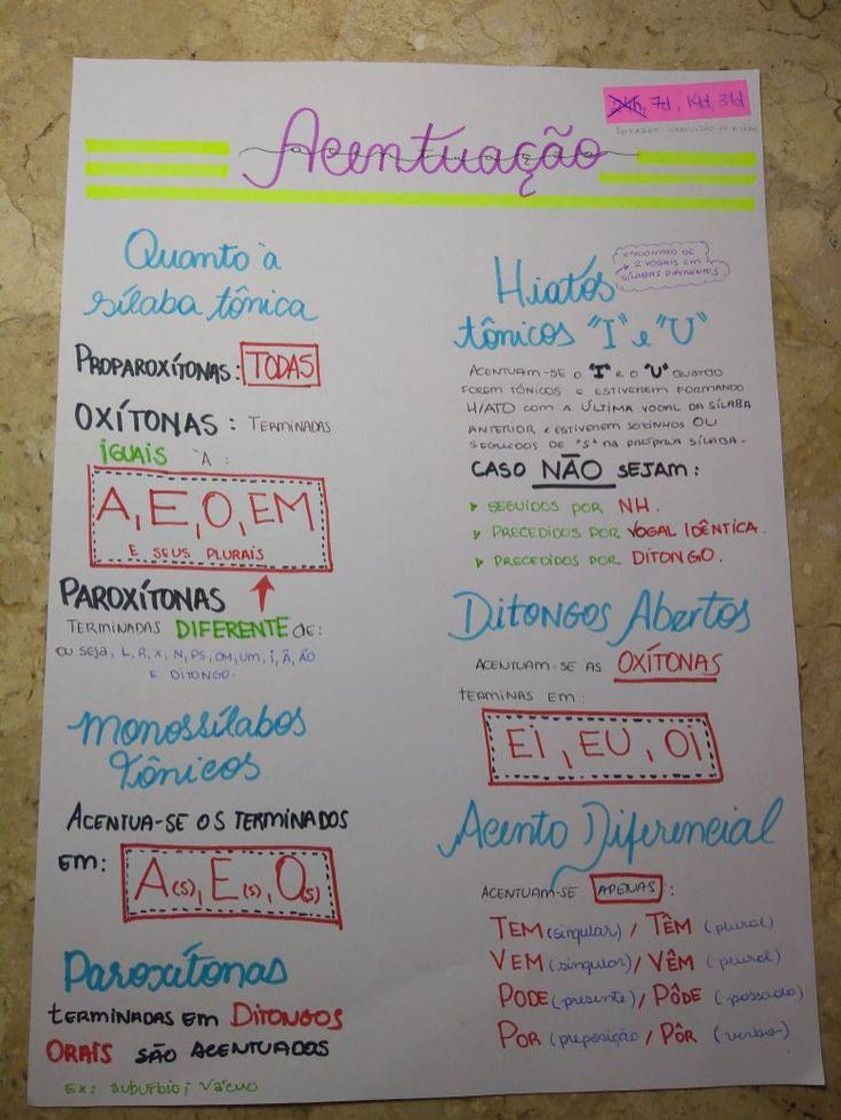 24h, 7d, 14d, 31d
Acentuação
Quanto à
sílaba tônica
PROPAROXÍTONAS: TODAS
OXÍTONAS: TERMINADAS
IGUAIS À:
A, E, O, EM
E SEUS PLURAIS
PAROXÍTONAS
TERMINADAS DIFERENTE DE:
OU SEJA, L, R, X, N, PS, OM, UM, I, Ã, ÃO
E DITONGO.
Monossílabos
Tônicos
ACENTUA-SE OS TERMINADOS
EM: A(S), E(S), O(S)
Paroxítonas
TERMINADAS EM DITONGOS
ORAIS SÃO ACENTUADAS
EX: SUBÚRBIO; VÁCUO
ENCONTRO DE
2 VOGAIS EM
SÍLABAS DIFERENTES
Hiatos
tônicos "I" e "U"
ACENTUAM-SE O "I" E O "U" QUANDO
FOREM TÔNICOS E ESTIVEREM FORMANDO
HIATO COM A ÚLTIMA VOGAL DA SÍLABA
ANTERIOR E ESTIVEREM SOZINHOS OU
SEGUIDOS DE "S" NA PRÓPRIA SÍLABA.
CASO NÃO SEJAM:
SEGUIDOS POR NH.
PRECEDIDOS POR VOGAL IDÊNTICA.
PRECEDIDOS POR DITONGO.
Ditongos Abertos
ACENTUAM-SE AS OXÍTONAS
TERMINAS EM:
EI, EU, OI
Acento Diferencial
ACENTUAM-SE APENAS:
TEM (singular) / TÊM (plural)
VEM (singular) / VÊM (plural)
PODE (presente) / PÔDE (passado)
POR (preposição / PÔR (verbo)